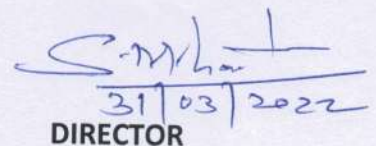 31/03/2022
DIRECTOR